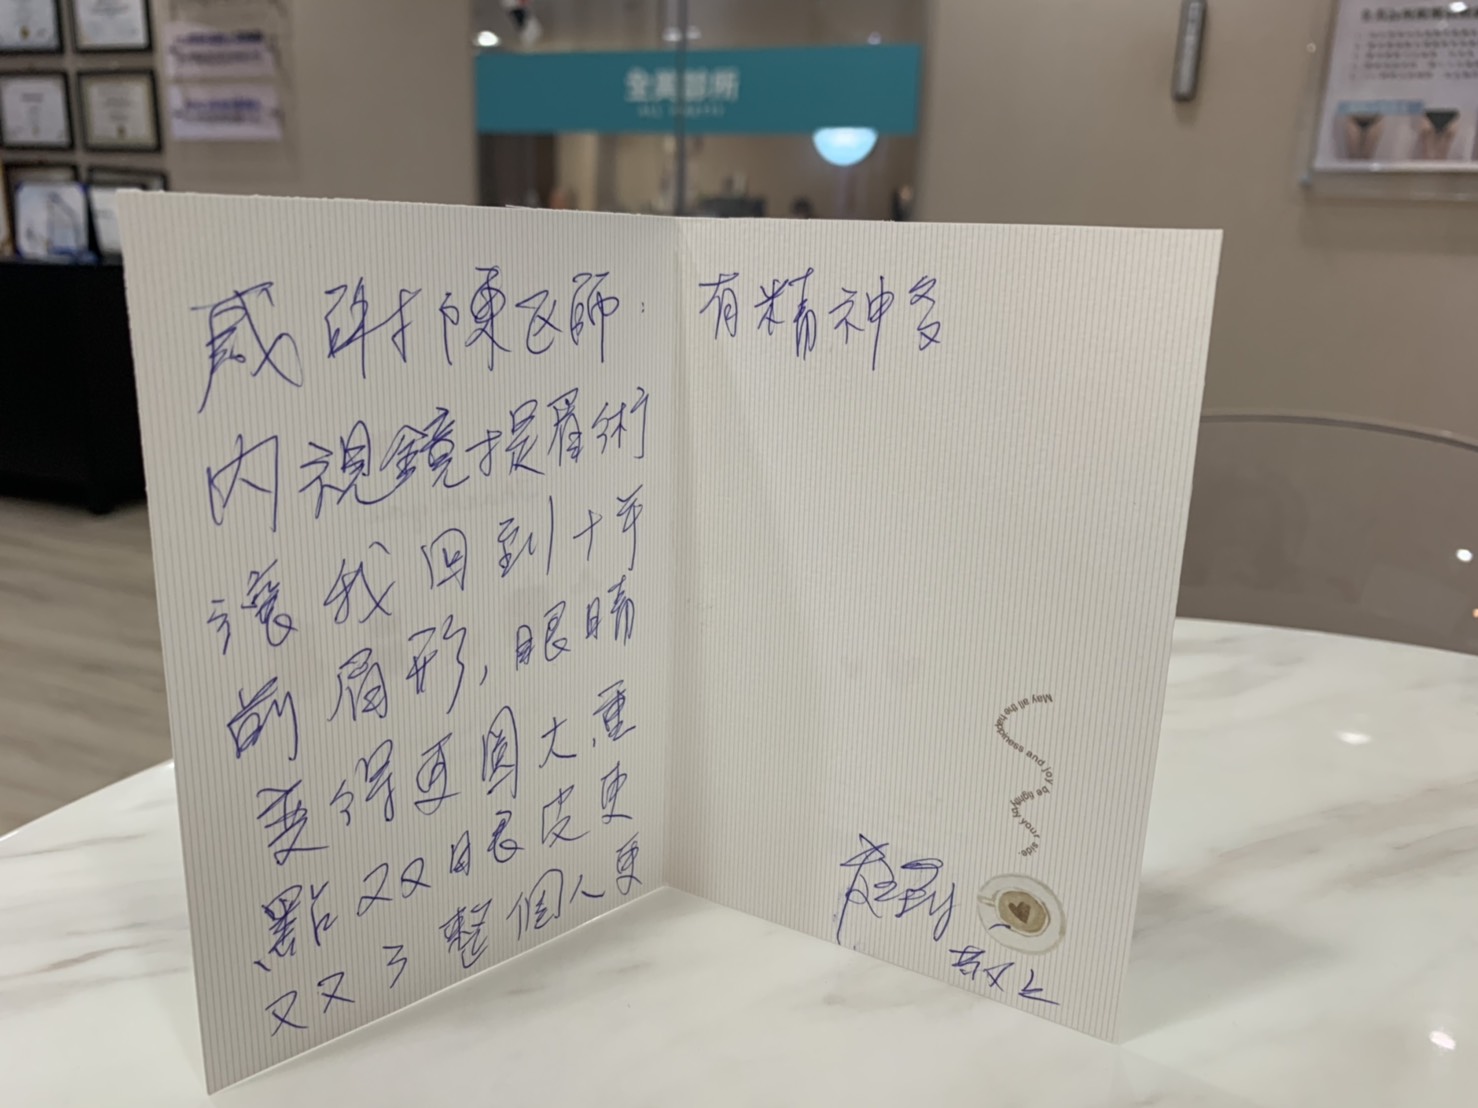 全美診所
感謝陳医師:
內視鏡提眉術
讓我回到十年
前眉形,眼睛
変得更圓大,重
點双眼皮更
双了整個人更
有精神多
May all the happiness and joy be lightly by your side.
敬上